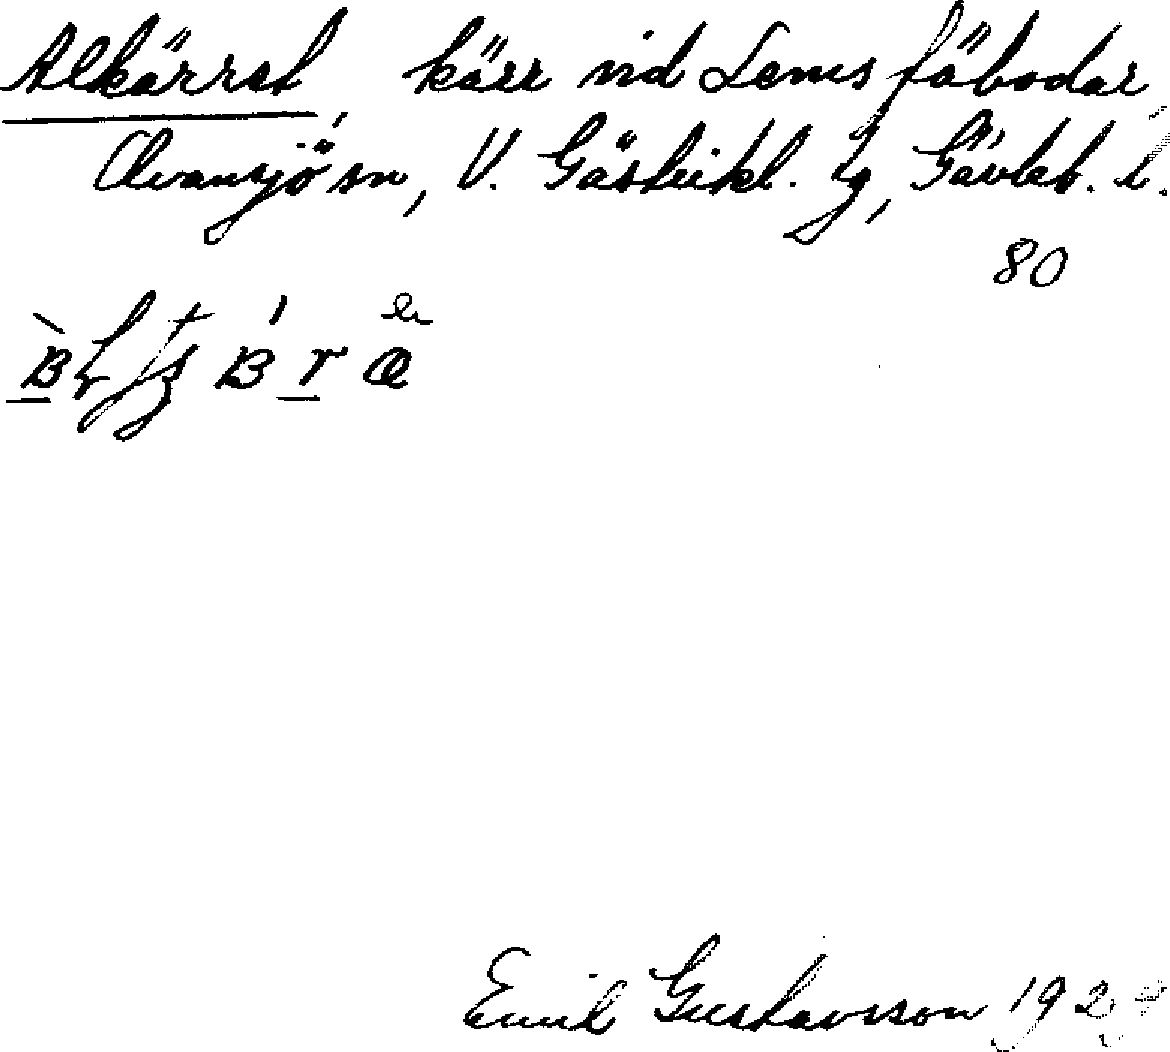 Alkärret kärr vid Lenis fäbodar,
Ovansjö sn, V. Gästrikl. tg, Gävleb. l.
80
Emil Gustavsson 192